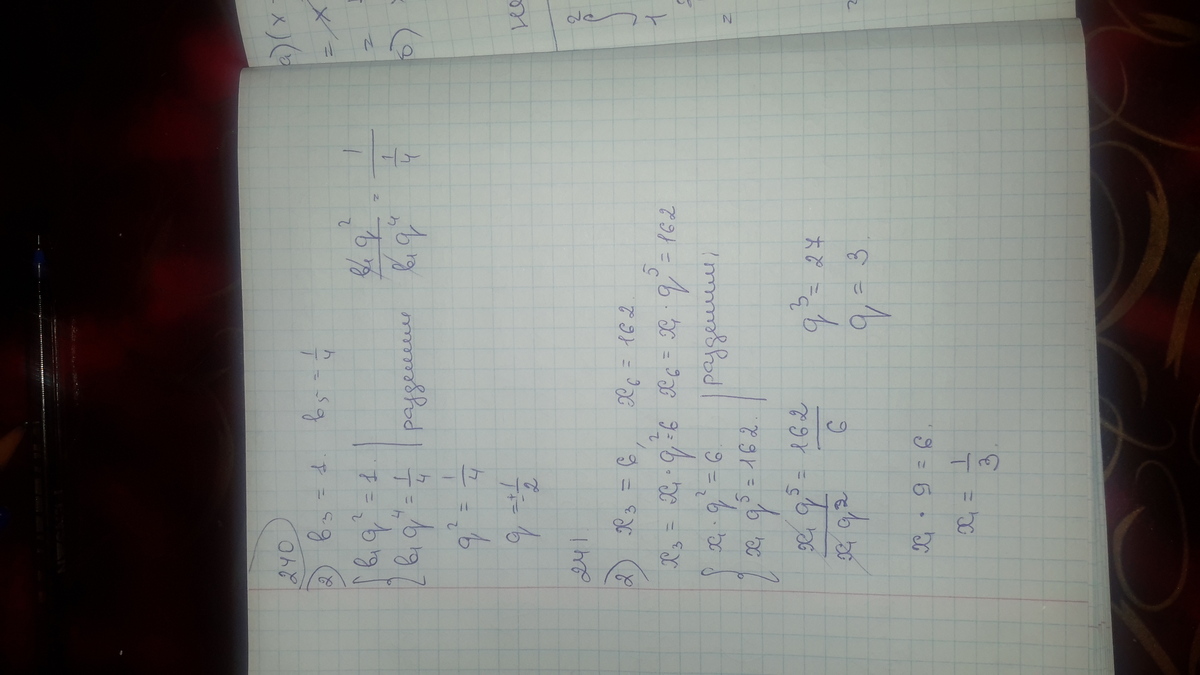 а) (x
= x
=
б)
2
1
=
=
240
2) b₃ = 1. b₅ = 1/4
{ b₁q² = 1.
{ b₁q⁴ = 1/4 | разделим b₁q²/b₁q⁴ = 1/(1/4)
q² = 1/4
q = ±1/2
241
2) x₃ = 6, x₆ = 162
x₃ = x₁·q²=6 x₆ = x₁·q⁵ = 162
{ x₁·q² = 6.
{ x₁q⁵ = 162. | разделим;
x₁q⁵/x₁q² = 162/6 q³ = 27
q = 3.
x₁·9 = 6.
x₁ = 1/3.